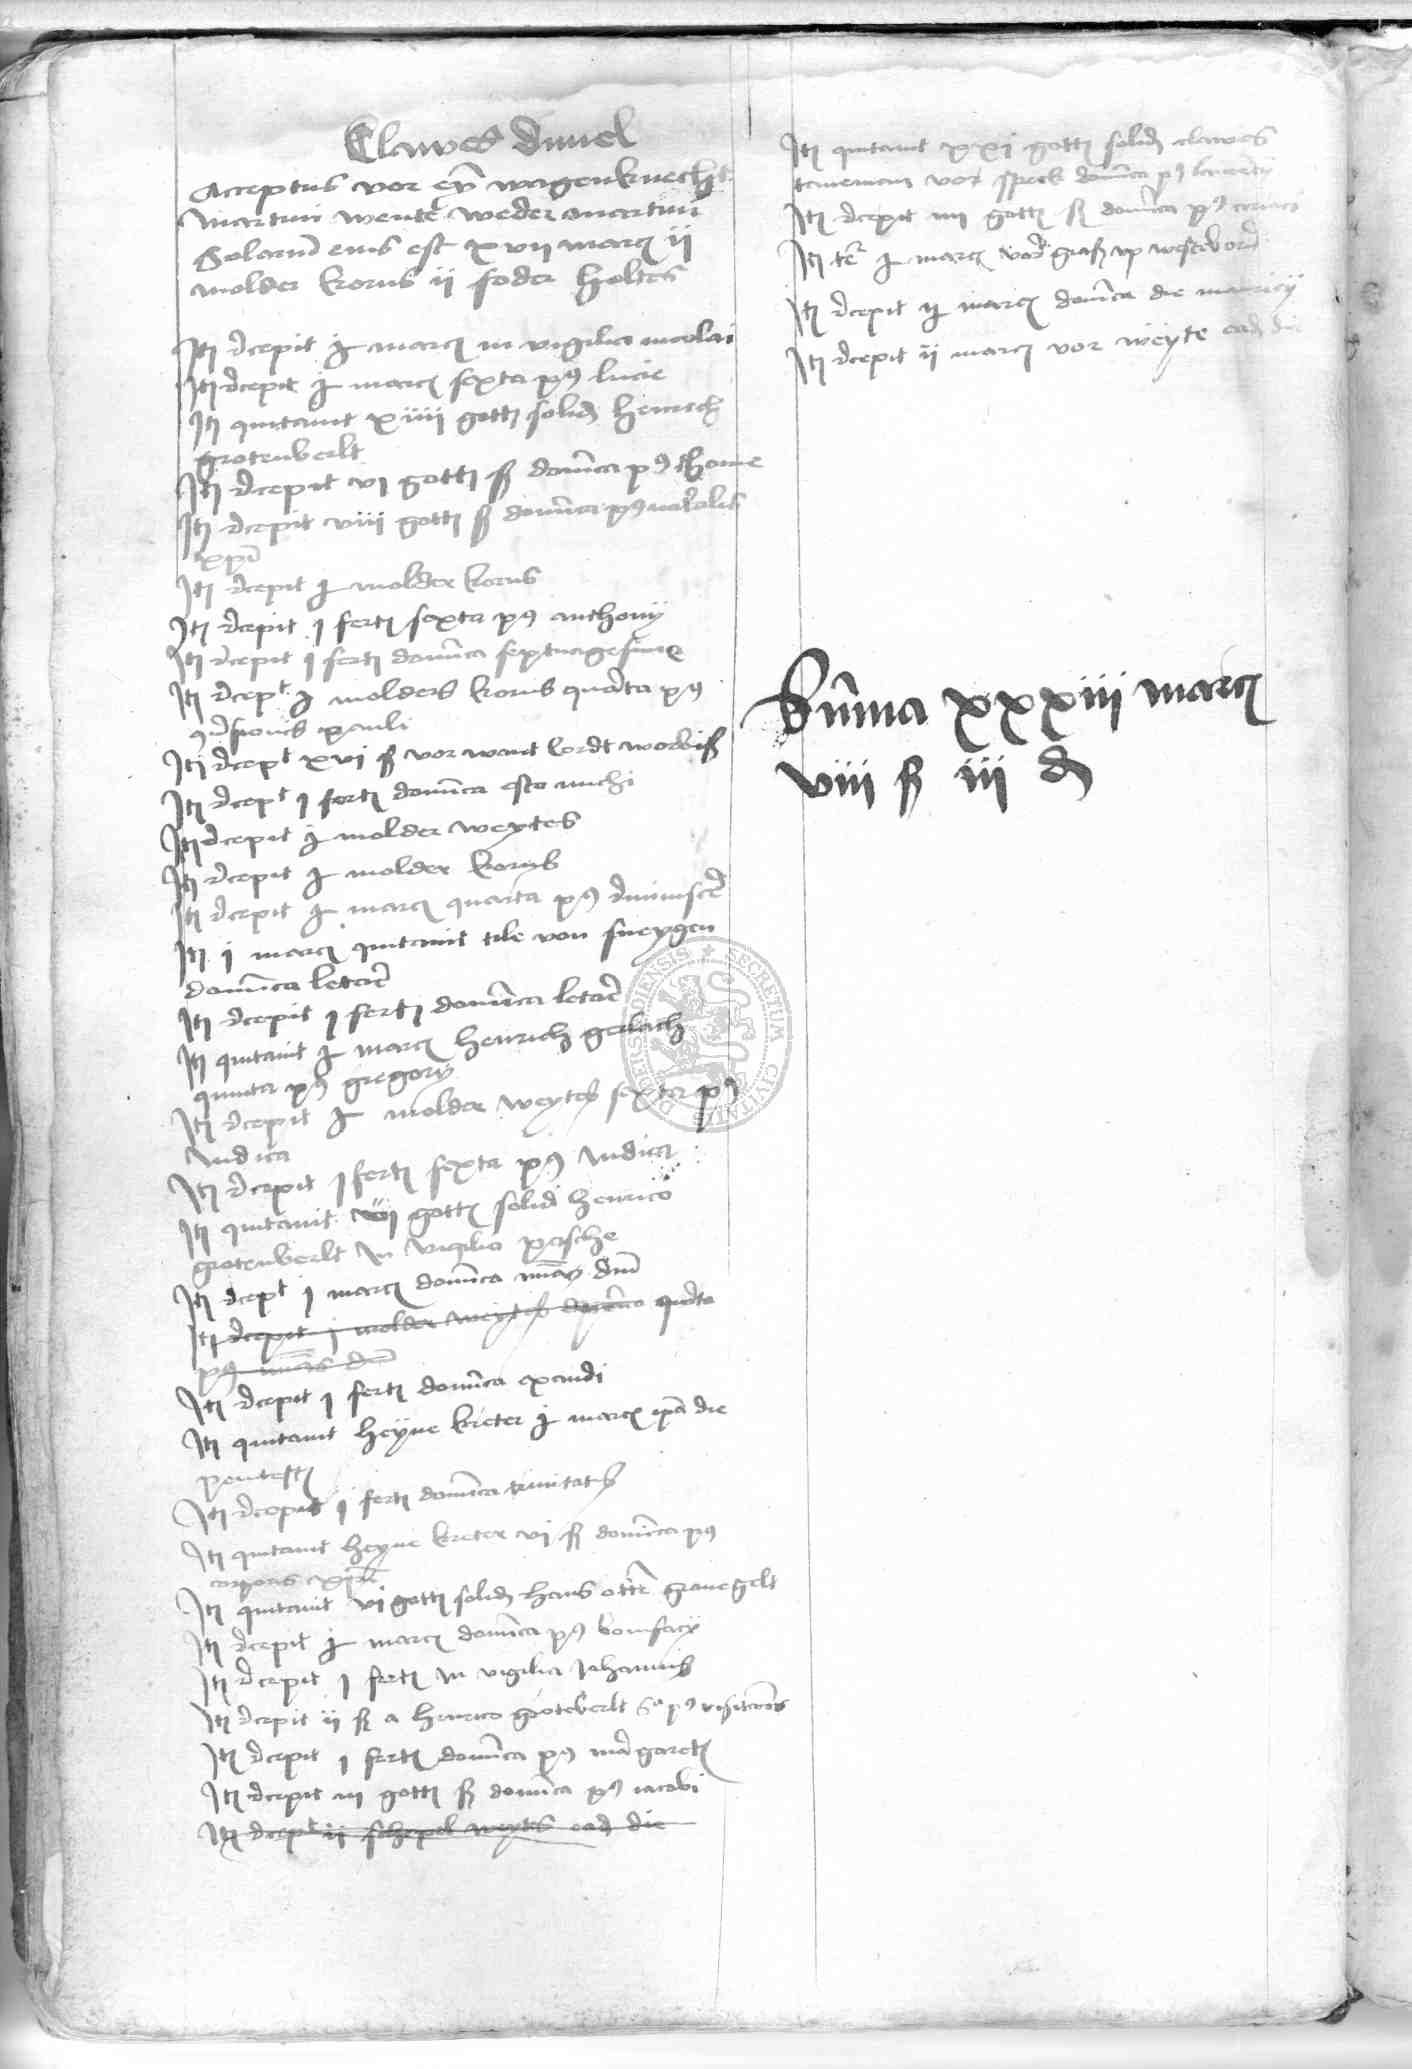 Clawes Duvel
Acceptus vor eyn wagenknecht
martini wente weder martini
Solarium eius est xvii marc ii
molder korns ii foder holtes
Itm recepit j marc in vigilia nicolai
Itm recepit j marc sexta post lucie
Itm quitavit xiiii gott solid henrich
grotenberlt
Itm recepit vi gott ß dominica post thome
Itm recepit viii gott ß dominica post natalis
xpi
Itm recepit j molder korns
Itm recepit j fert sexta post anthonij
Itm recepit j fert dominica septuagesime
Itm recept j molders korns quarta post
conversionis pauli
Itm recept xvi ß vor want kordt worbiß
Itm recept j fert dominica esto michi
Itm recepit j molder weytes
Itm recepit j molder korns
Itm recepit j marc quarta post reminiscere
Itm j marc quitavit tile von sneygen
dominica letare
Itm recepit j fert dominica letare
Itm quitavit j marc henrich gerlach
quinta post gregory
Itm recepit j molder weytes sexta post
Iudica
Itm recepit j fert sexta post Iudica
Itm quitavit vii gott solid henrico
grotenberlt In vigilia pasche
Itm recept j marc dominica mias dni
Itm recepit j molder weytes quarta
post mias dni
Itm recepit j fert dominica exaudi
Itm quitavit heyne kreter j marc ipa die
pentest
Itm recepit j fert dominica trinitatis
Itm quitavit heyne kreter vi ß dominica post
corporis xpi
Itm quitavit vi gott solid hans gravegelt
Itm recepit j marc dominica post bonifacy
Itm recepit j fert In vigilia Iohannis
Itm recepit ij ß a henrico grotberlt post visitationis
Itm recepit j fert dominica post margarete
Itm recepit iii gott ß dominica post iacobi
Itm recept ii schepel weytes ead die
Itm quitavit xxi gott solid clawes
vor speck dominica post laurency
Itm recepit iiii gott ß dominica post
Itm j marc vor graß up
Itm recepit ij marc dominica die mauricy
Itm recepit ij marc vor weyte ead die
Summa xxxiii marc
viii ß iii d
SECRETUM CIVITATIS DUDERSTADIENSIS